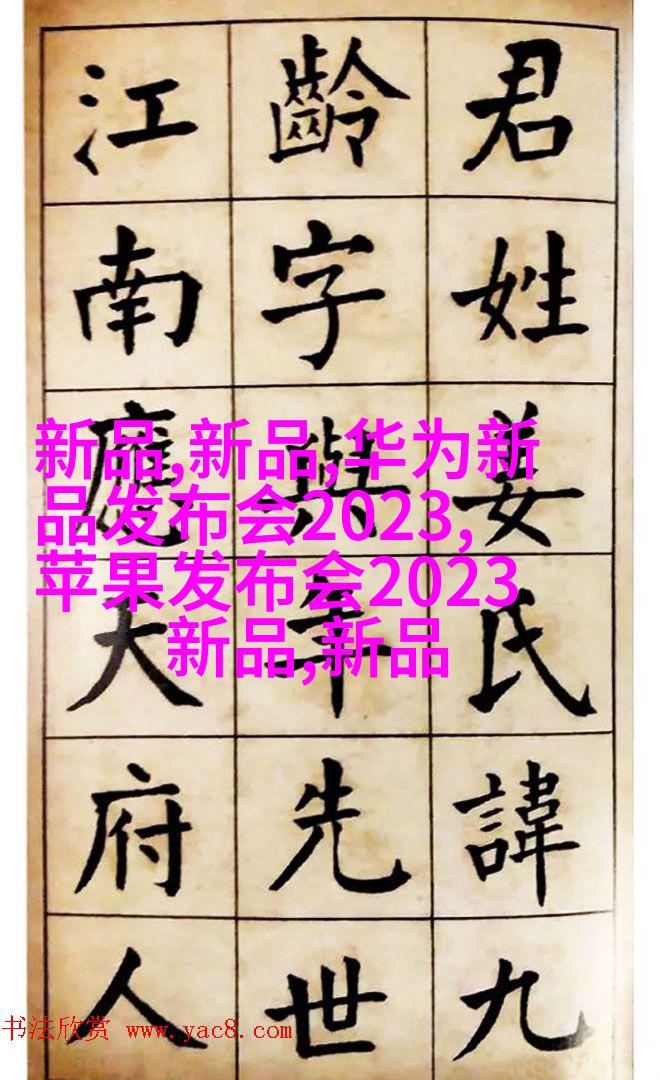 君姓姜氏諱九
齡字與年先世
江南應天府人
新品,新品,华为新
品发布会2023,
苹果发布会2023
新品,新品
书法欣赏 www.yac8.com